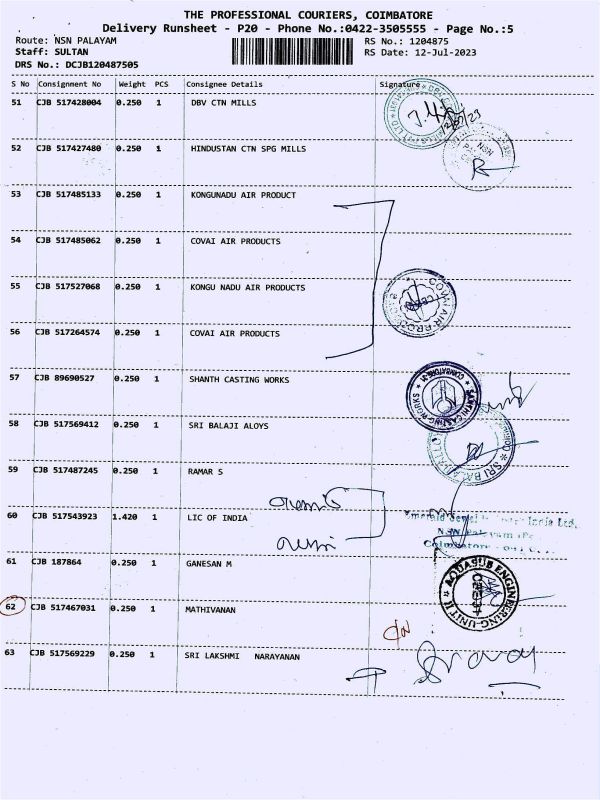 THE PROFESSIONAL COURIERS, COIMBATORE
Delivery Runsheet - P20 - Phone No.:0422-3505555 - Page No.:5
Route: NSN PALAYAM RS No.: 1204875
Staff: SULTAN RS Date: 12-Jul-2023
DRS No.: DCJB120487505
S No Consignment No Weight PCS Consignee Details Signature
51 CJB 517428004 0.250 1 DBV CTN MILLS
12/07/23
52 CJB 517427480 0.250 1 HINDUSTAN CTN SPG MILLS
NSN
53 CJB 517485133 0.250 1 KONGUNADU AIR PRODUCT
54 CJB 517485062 0.250 1 COVAI AIR PRODUCTS
55 CJB 517527068 0.250 1 KONGU NADU AIR PRODUCTS
56 CJB 517264574 0.250 1 COVAI AIR PRODUCTS
57 CJB 89690527 0.250 1 SHANTH CASTING WORKS
58 CJB 517569412 0.250 1 SRI BALAJI ALOYS
59 CJB 517487245 0.250 1 RAMAR S
60 CJB 517543923 1.420 1 LIC OF INDIA
India Ltd,
Coimbatore
61 CJB 187864 0.250 1 GANESAN M
AQUASUB ENGINEERING-UNIT II
62 CJB 517467031 0.250 1 MATHIVANAN
63 CJB 517569229 0.250 1 SRI LAKSHMI NARAYANAN